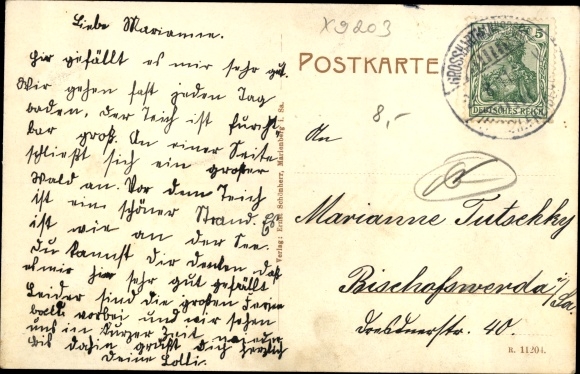 Liebe Marianne.
hier gefällt es mir sehr gut.
Wir gehen fast jeden Tag
baden, der Teich ist furcht-
bar groß. An einer Seite
schließt sich ein großer
Wald an. Vor dem Teich
ist ein schöner Strand. Es
ist wie an der See.
Du kannst dir denken, daß
es mir hier sehr gut gefällt
Leider sind die großen Ferien
bald vorbei und wir sehen
uns in kurzer Zeit wieder
bis dahin grüßt dich herzlich
Deine Lotti.
Verlag: Ernst Schönherr, Marienberg i. Sa.
X9203
POSTKARTE
5
DEUTSCHES REICH
8,-
An
Marianne Tutschky
Bischofswerda i/Sa.
Dresdnerstr. 40.
R. 11204.